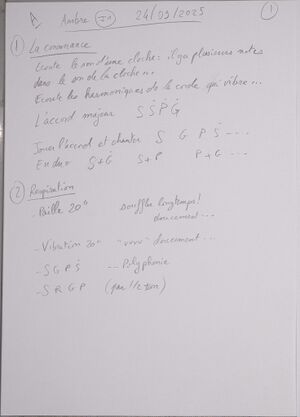 A Ambre J1 24/09/2025 1
1 La consonance
Ecoute le son d'une cloche: il y a plusieurs notes
dans le son de la cloche...
Ecoute les harmoniques de la corde qui vibre...
L'accord majeur S Ṡ Ṗ Ġ
Jouer l'accord et chanter S G P Ṡ ...
En duo S+G S+P P+G ...
2 Respiration
- Paille 20" souffle longtemps!
doucement...
- Vibration 20" "vvvv" doucement...
- S G P Ṡ -- Polyphonie
- S R G P (par 1/2 ton)